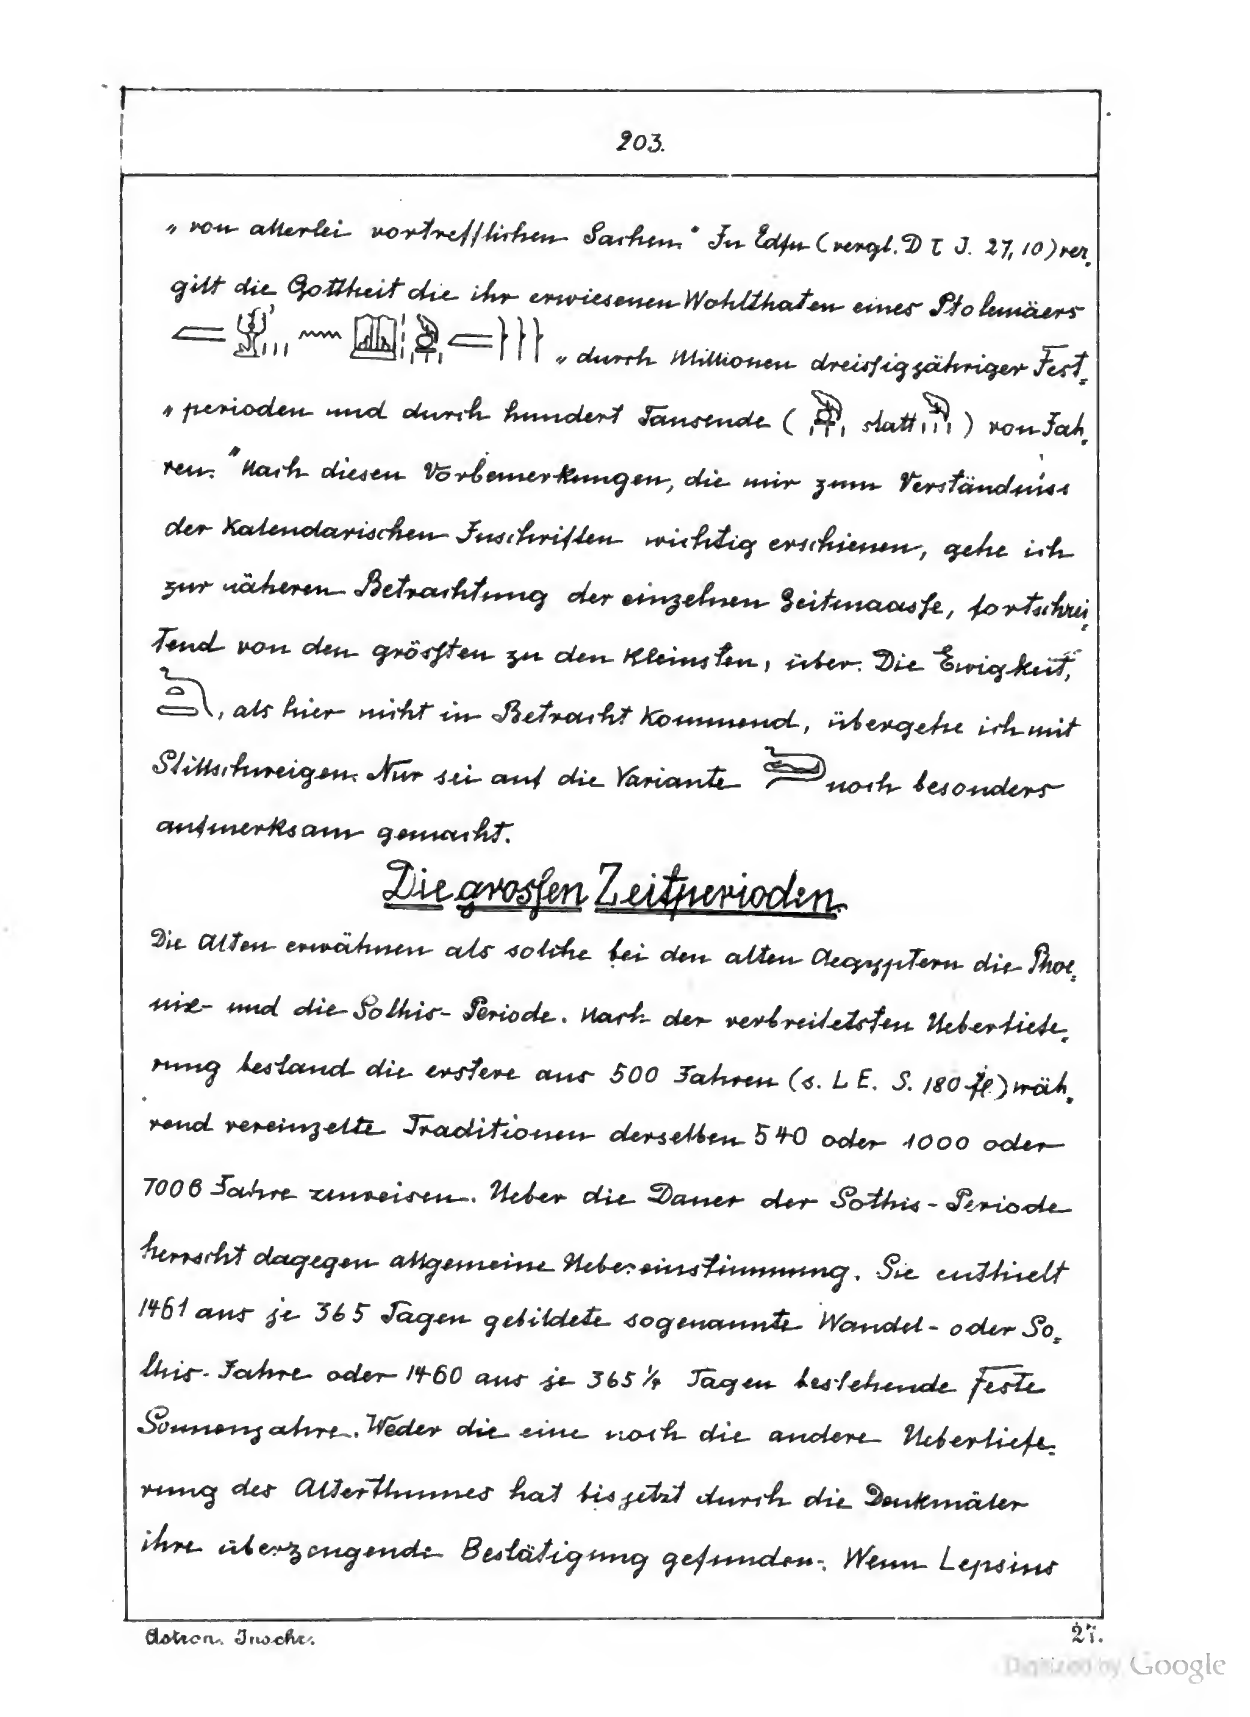 203.
„von allerlei vortrefflichen Sachen." In Edfu (vergl. D T I. 27, 10) ver=
gilt die Gottheit die ihr erwiesenen Wohlthaten eines Ptolemäers
„durch Millionen dreissigjähriger Fest=
„perioden und durch hundert Tausende ( statt ) von Jah=
ren." Nach diesen Vorbemerkungen, die mir zum Verständniss
der Kalendarischen Inschriften wichtig erschienen, gehe ich
zur näheren Betrachtung der einzelnen Zeitmaasse, fortschrei=
tend von den grössten zu den kleinsten, über. Die Ewigkeit,
, als hier nicht in Betracht kommend, übergehe ich mit
Stillschweigen. Nur sei auf die Variante noch besonders
aufmerksam gemacht.
Die grossen Zeitperioden.
Die Alten erwähnen als solche bei den alten Aegyptern die Phoe=
nix- und die Sothis-Periode. Nach der verbreitetsten Ueberliefe=
rung bestand die erstere aus 500 Jahren (s. L E. S. 180 fl.) wäh=
rend vereinzelte Traditionen derselben 540 oder 1000 oder
7006 Jahre zuweisen. Ueber die Dauer der Sothis-Periode
herrscht dagegen allgemeine Uebereinstimmung. Sie enthielt
1461 aus je 365 Tagen gebildete sogenannte Wandel- oder So=
this-Jahre oder 1460 aus je 365 1/4 Tagen bestehende feste
Sonnenjahre. Weder die eine noch die andere Ueberliefe=
rung des Alterthumes hat bis jetzt durch die Denkmäler
ihre überzeugende Bestätigung gefunden. Wenn Lepsius
Astron. Inschr.
27.
Digitized by Google